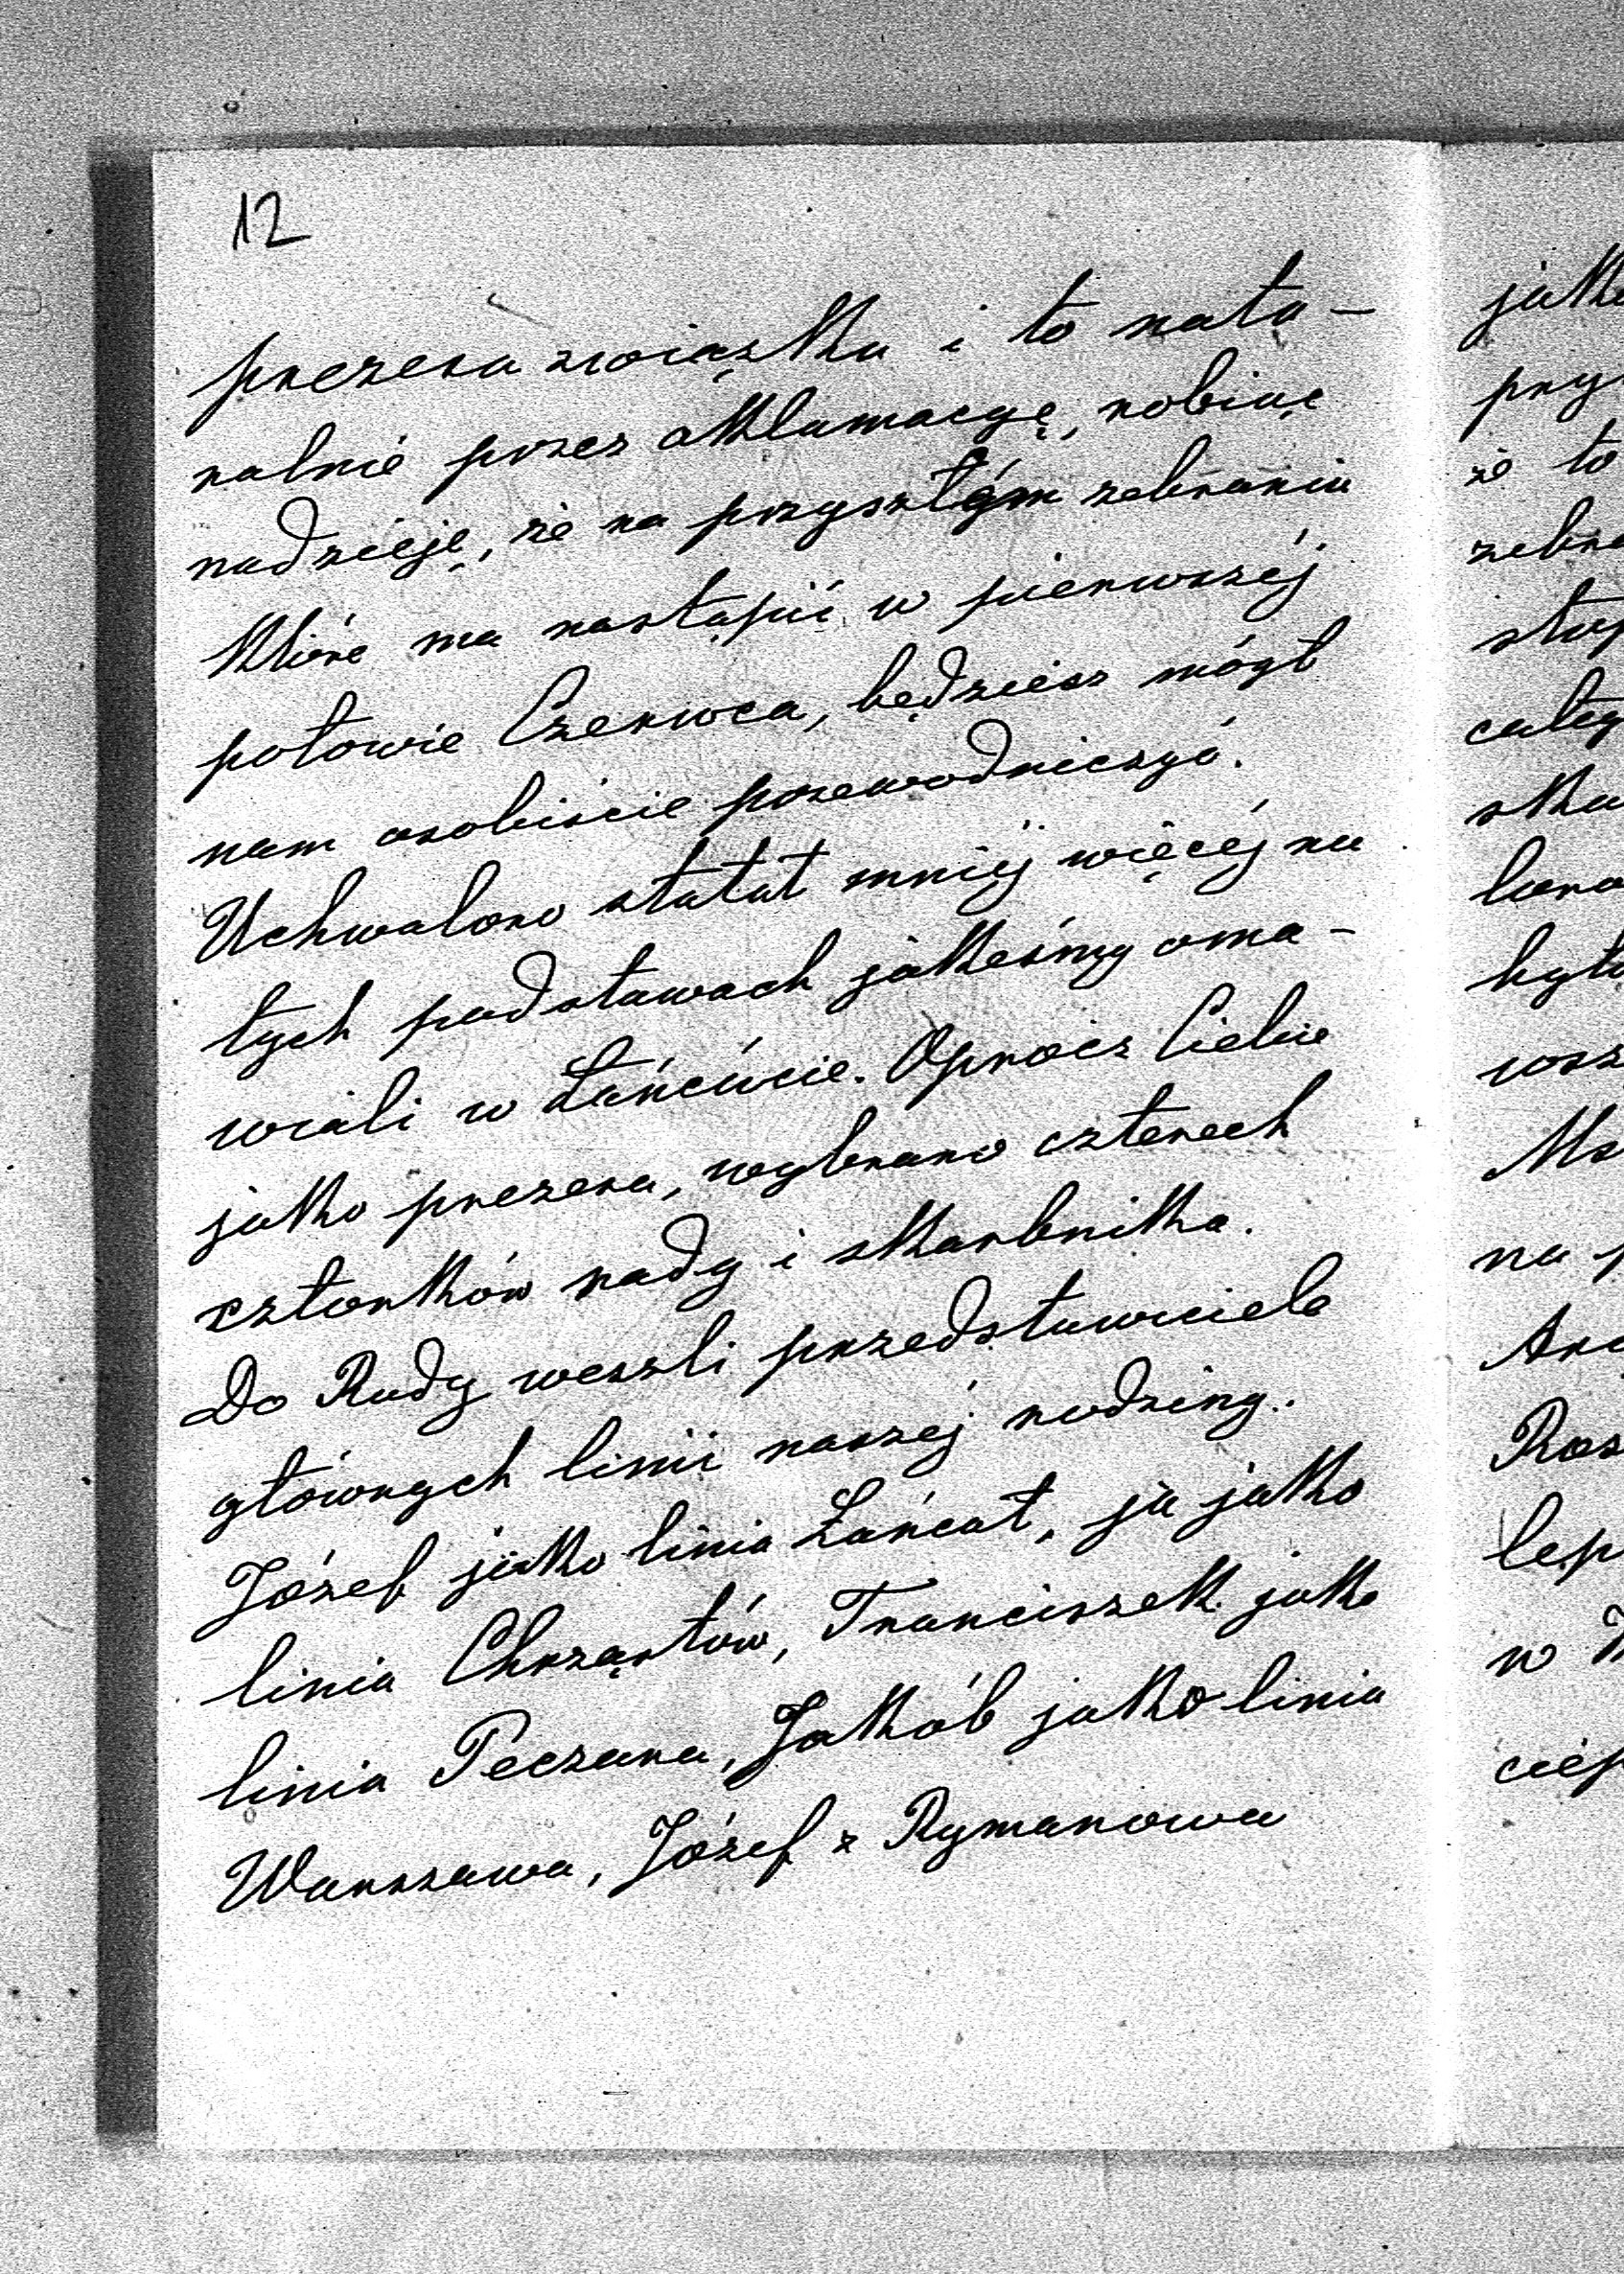 12
prezesa związku i to natu-
ralnie przez aklamacyę, robiąc
nadzieję, że na przyszłém zebraniu
które ma nastąpić w pierwszéj
połowie Czerwca, będziesz mógł
nam osobiście przewodniczyć.
Uchwalono statut mniéj więcéj na
tych podstawach jakieśmy oma-
wiali w Łańcucie. Oprócz Ciebie
jako prezesa, wybrano czterech
członków rady i skarbnika.
Do Rady weszli przedstawiciele
głównych linii naszéj rodziny.
Józef jako linia Łańcut, ja jako
linia Chrząstów, Franciszek jako
linia Peczara, Jakób jako linia
Warszawa, Józef z Rymanowa